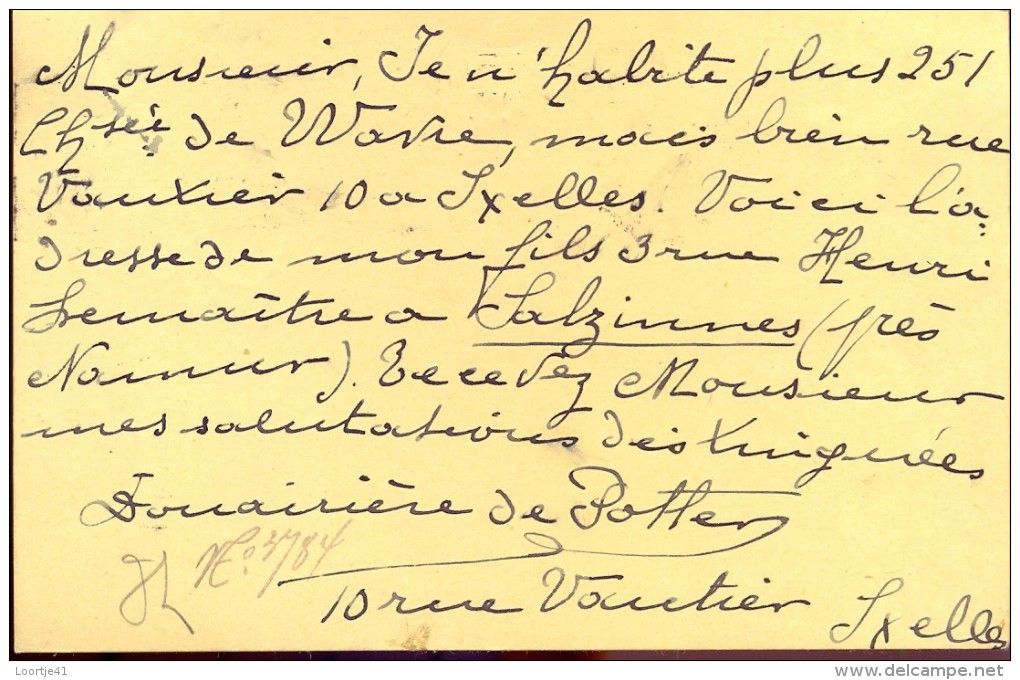 Monsieur, Je n'habite plus 251
Chsée de Wavre, mais bien rue
Vautier 10 a Ixelles. Voici l'a=
dresse de mon fils 3 rue Henri
Lemaître a Salzinnes (près
Namur). Recevez Monsieur
mes salutations distinguées
Douairière de Potter
No 3784
10 rue Vautier Ixelles
Loortje41
www.delcampe.net